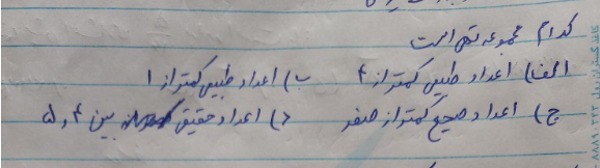 کدام مجموعه تهی است
الف) اعداد طبیعی کمتر از ۲ ب) اعداد طبیعی کمتر از ۱
ج) اعداد صحیح کمتر از صفر د) اعداد حقیقی بین ۴ و ۵